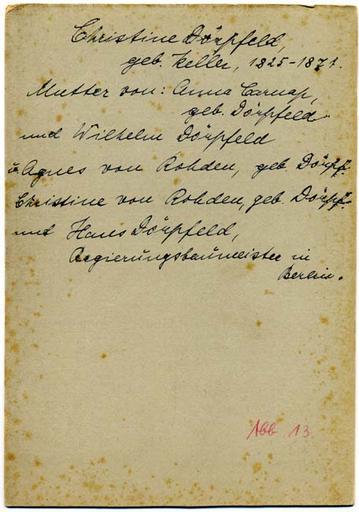 Christine Dörpfeld,
geb. Keller, 1825-1871.
Mutter von: Anna Carnap,
geb. Dörpfeld
und Wilhelm Dörpfeld
u. Agnes von Rohden, geb Dörpf.
Christine von Rohden, geb. Dörpf.
und Hans Dörpfeld,
Regierungsbaumeister in
Berlin.
Abb 13